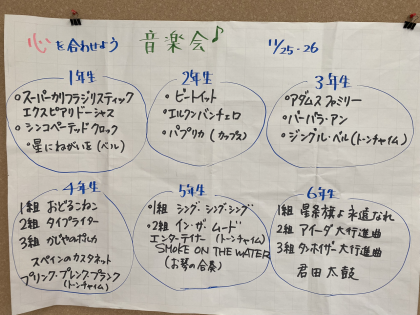 心を合わせよう 音楽会♪ 11/25・26
1年生
○スーパーカリフラジリスティック
エクスピアリドーシャス
○シンコペーテッドクロック
○星にねがいを(ベル)
2年生
○ビートイット
○エルクンバンチェロ
○パプリカ(カップス)
3年生
○アダムスファミリー
○バーバラ・アン
○ジングル・ベル(トーンチャイム)
4年生
1組 おどるこねこ
2組 タイプライター
3組 かじやのポルカ
スペインのカスタネット
プリンク・プレンク・プランク
(トーンチャイム)
5年生
○1組 シング・シング・シング
○2組 イン・ザ・ムード
エンターテイナー(トーンチャイム)
SMOKE ON THE WATER
(お琴の合奏)
6年生
1組 星条旗よ永遠なれ
2組 アイーダ大行進曲
3組 タンホイザー大行進曲
君田太鼓